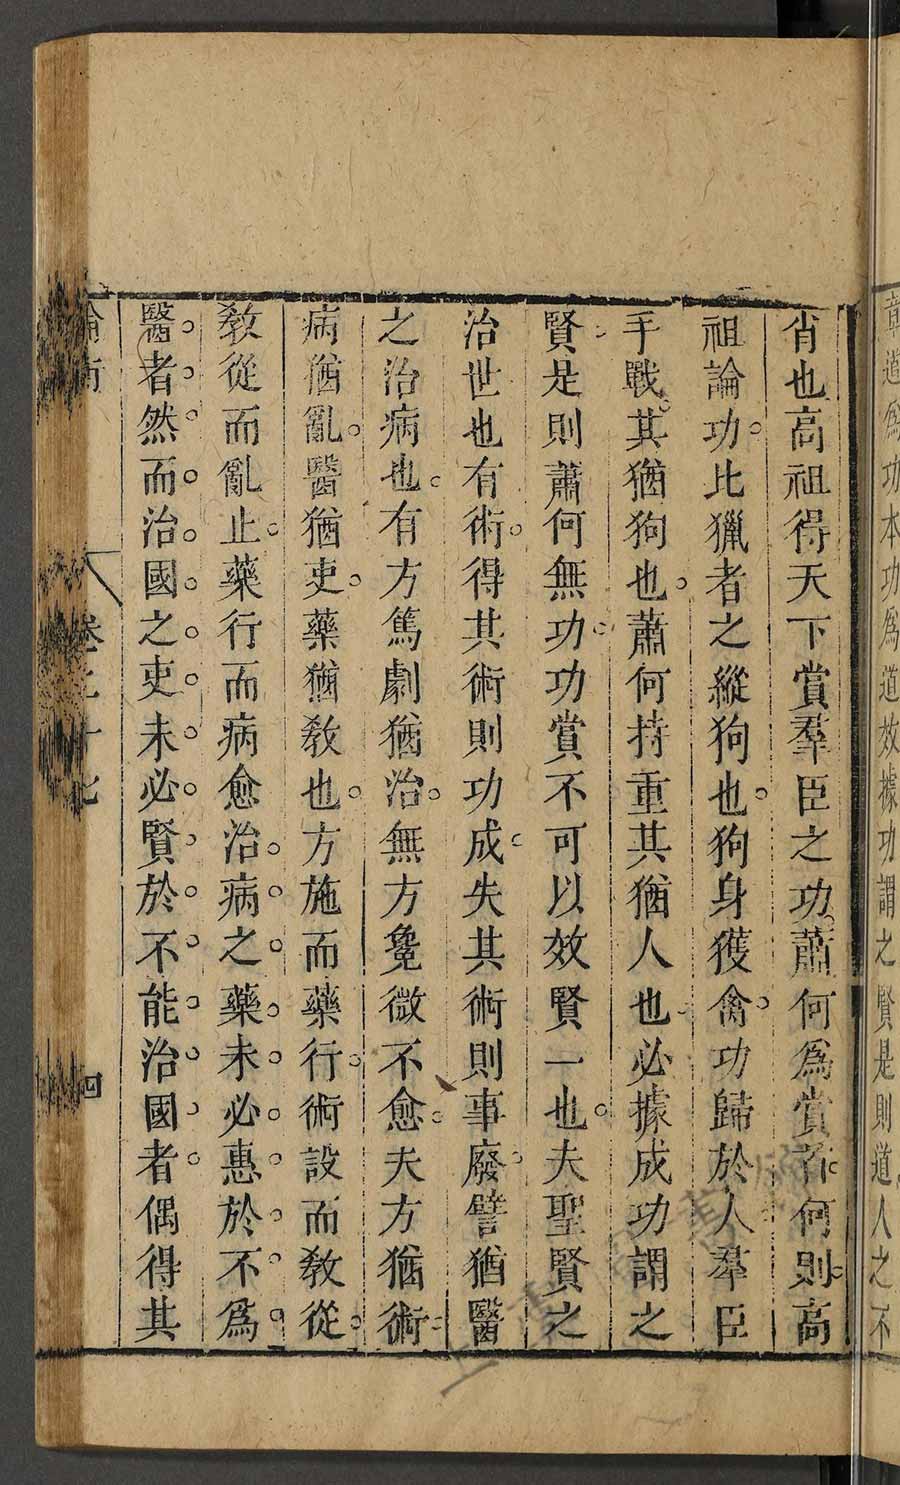 章道爲功本功爲道效據功謂之賢是則道人之不
肖也高祖得天下賞羣臣之功蕭何爲賞首何則高
祖論功比獵者之縱狗也狗身獲禽功歸於人羣臣
手戰其猶狗也蕭何持重其猶人也必據成功謂之
賢是則蕭何無功功賞不可以效賢一也夫聖賢之
治世也有術得其術則功成失其術則事廢譬猶醫
之治病也有方篤劇猶治無方毚微不愈夫方猶術
病猶亂醫猶吏藥猶教也方施而藥行術設而教從
教從而亂止藥行而病愈治病之藥未必惠於不爲
醫者然而治國之吏未必賢於不能治國者偶得其
論衡 卷二十七 四